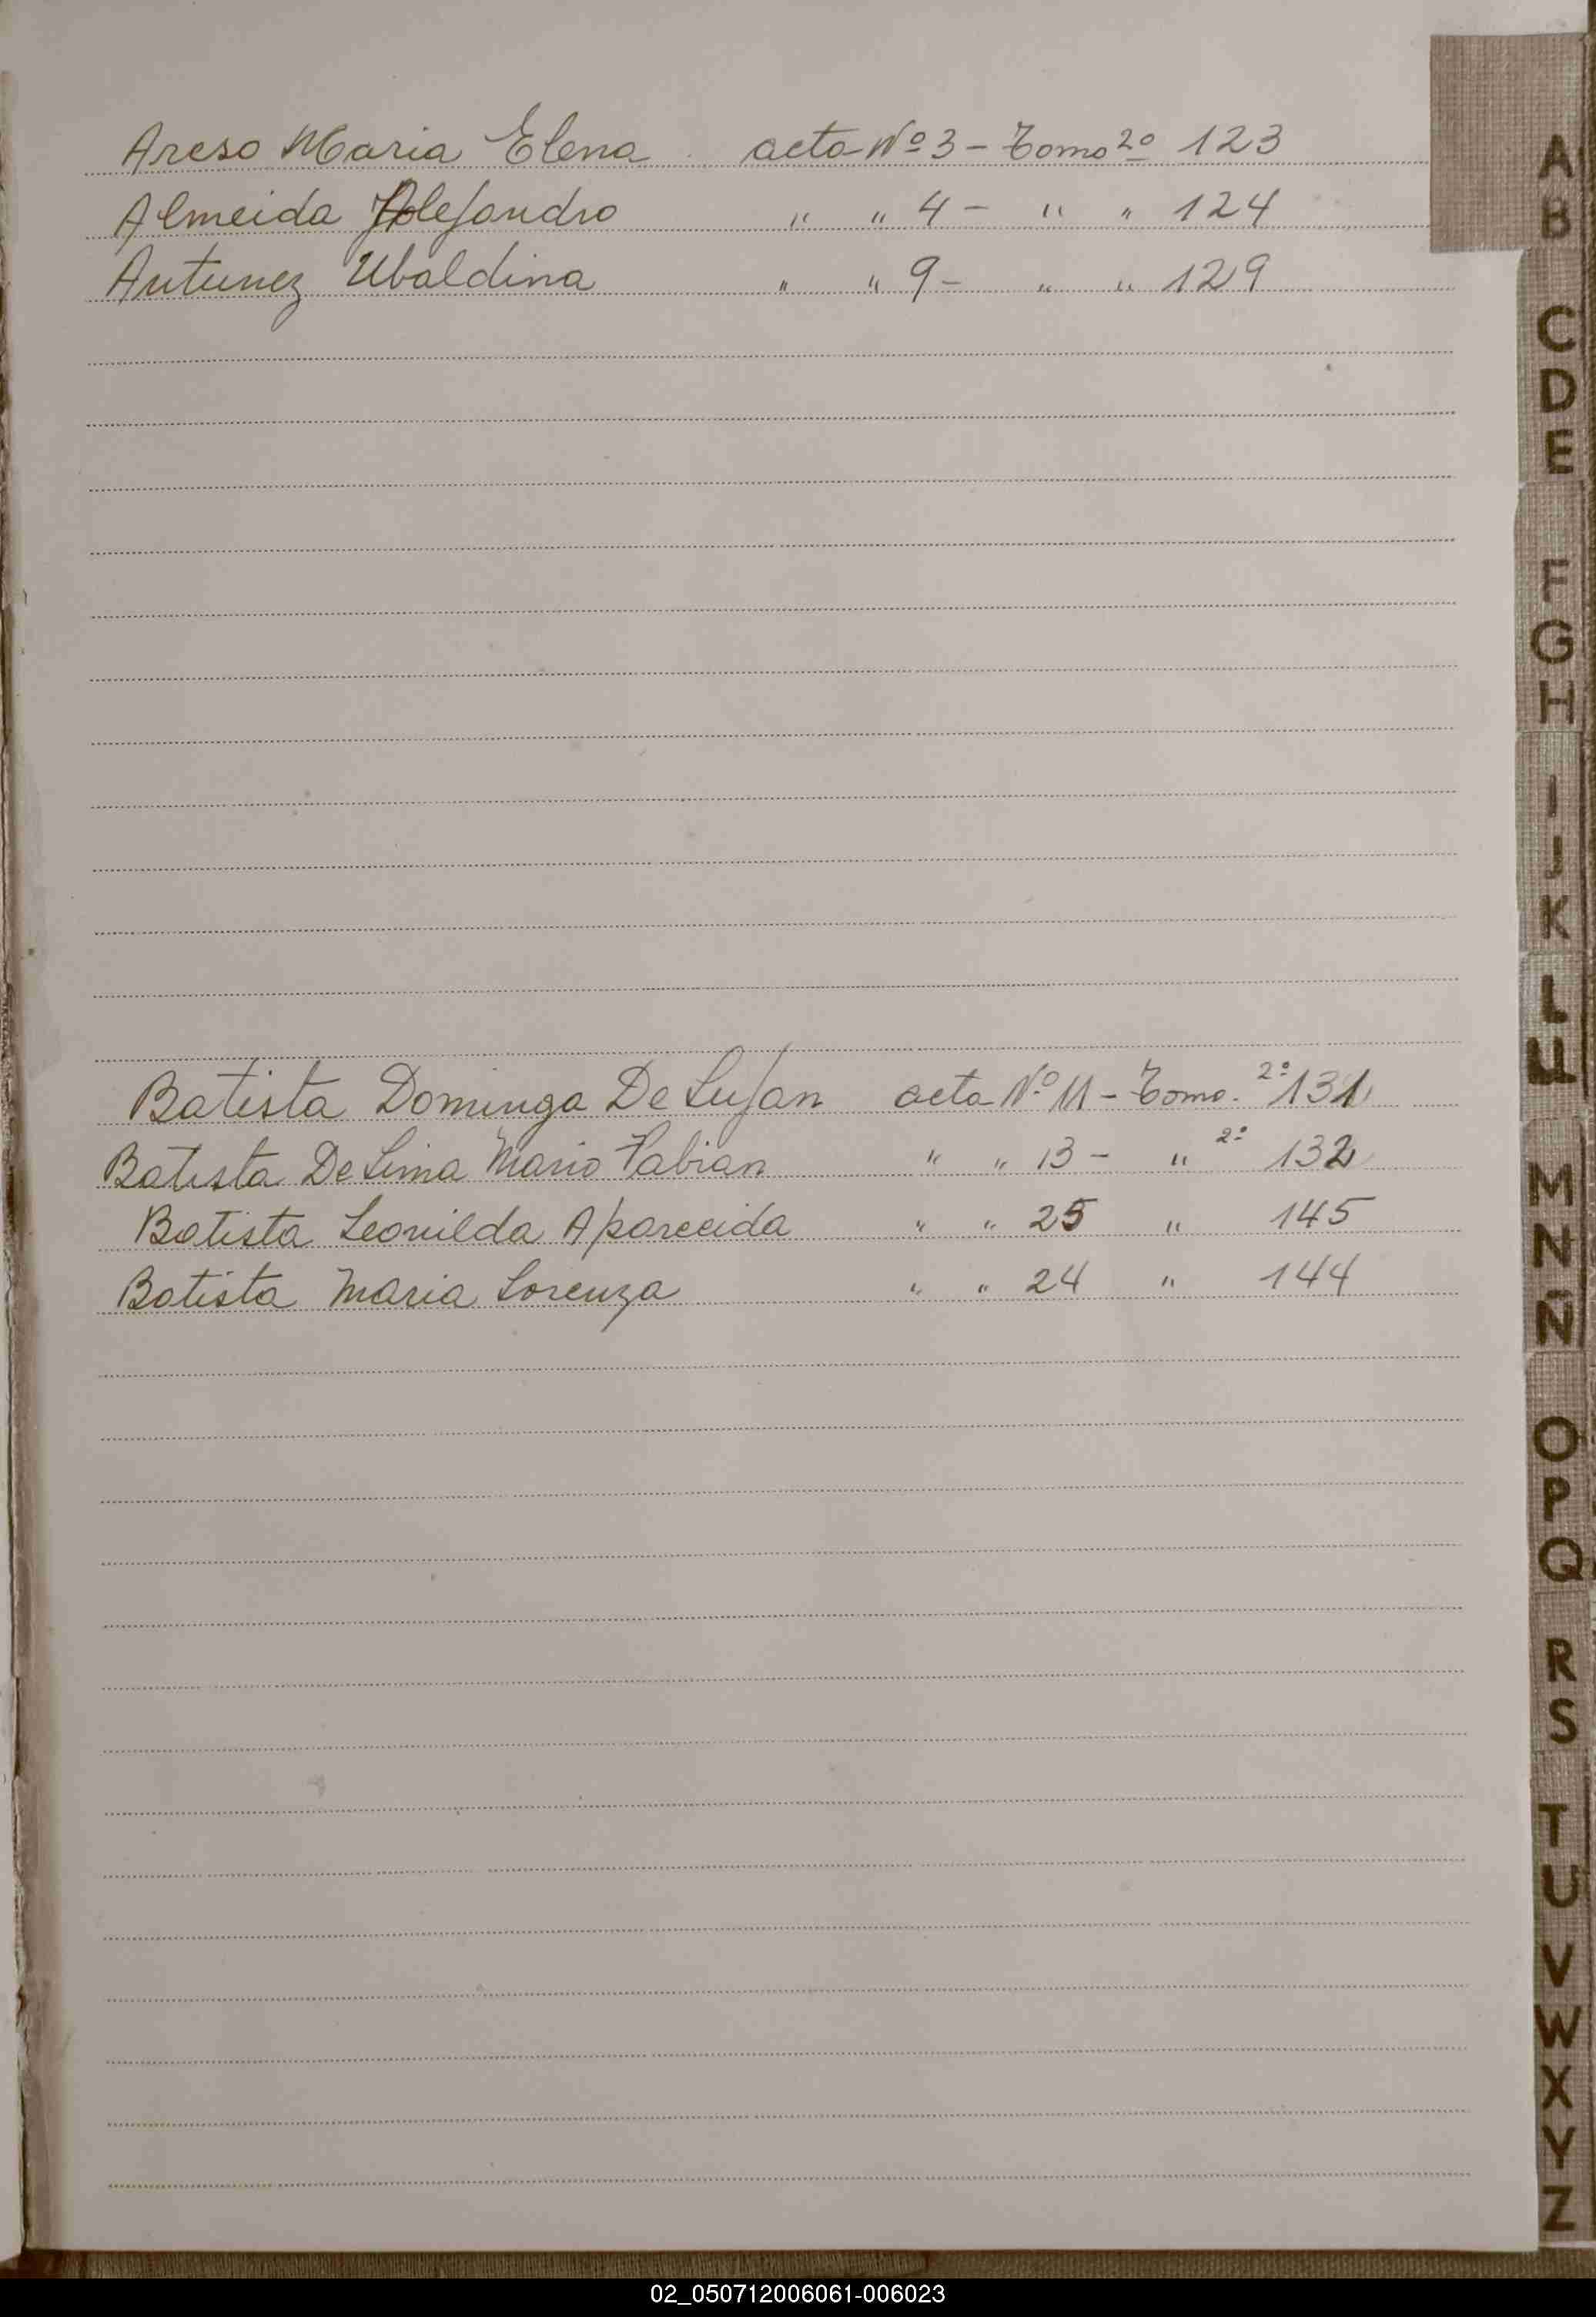 Areso Maria Elena acta Nº 3 - Tomo 2º 123
Almeida Alejandro " " 4 - " " 124
Antunez Ubaldina " " 9 - " " 129
Batista Dominga De Lujan acta Nº 11 - Tomo 2º 131
Batista De Lima Mario Fabian " " 13 - " 2º 132
Batista Leonilda Aparecida " " 25 " 145
Batista Maria Lorenza " " 24 " 144
A
B
C
D
E
F
G
H
I
J
K
L
LL
M
N
Ñ
O
P
Q
R
S
T
U
V
W
X
Y
Z
02_050712006061-006023